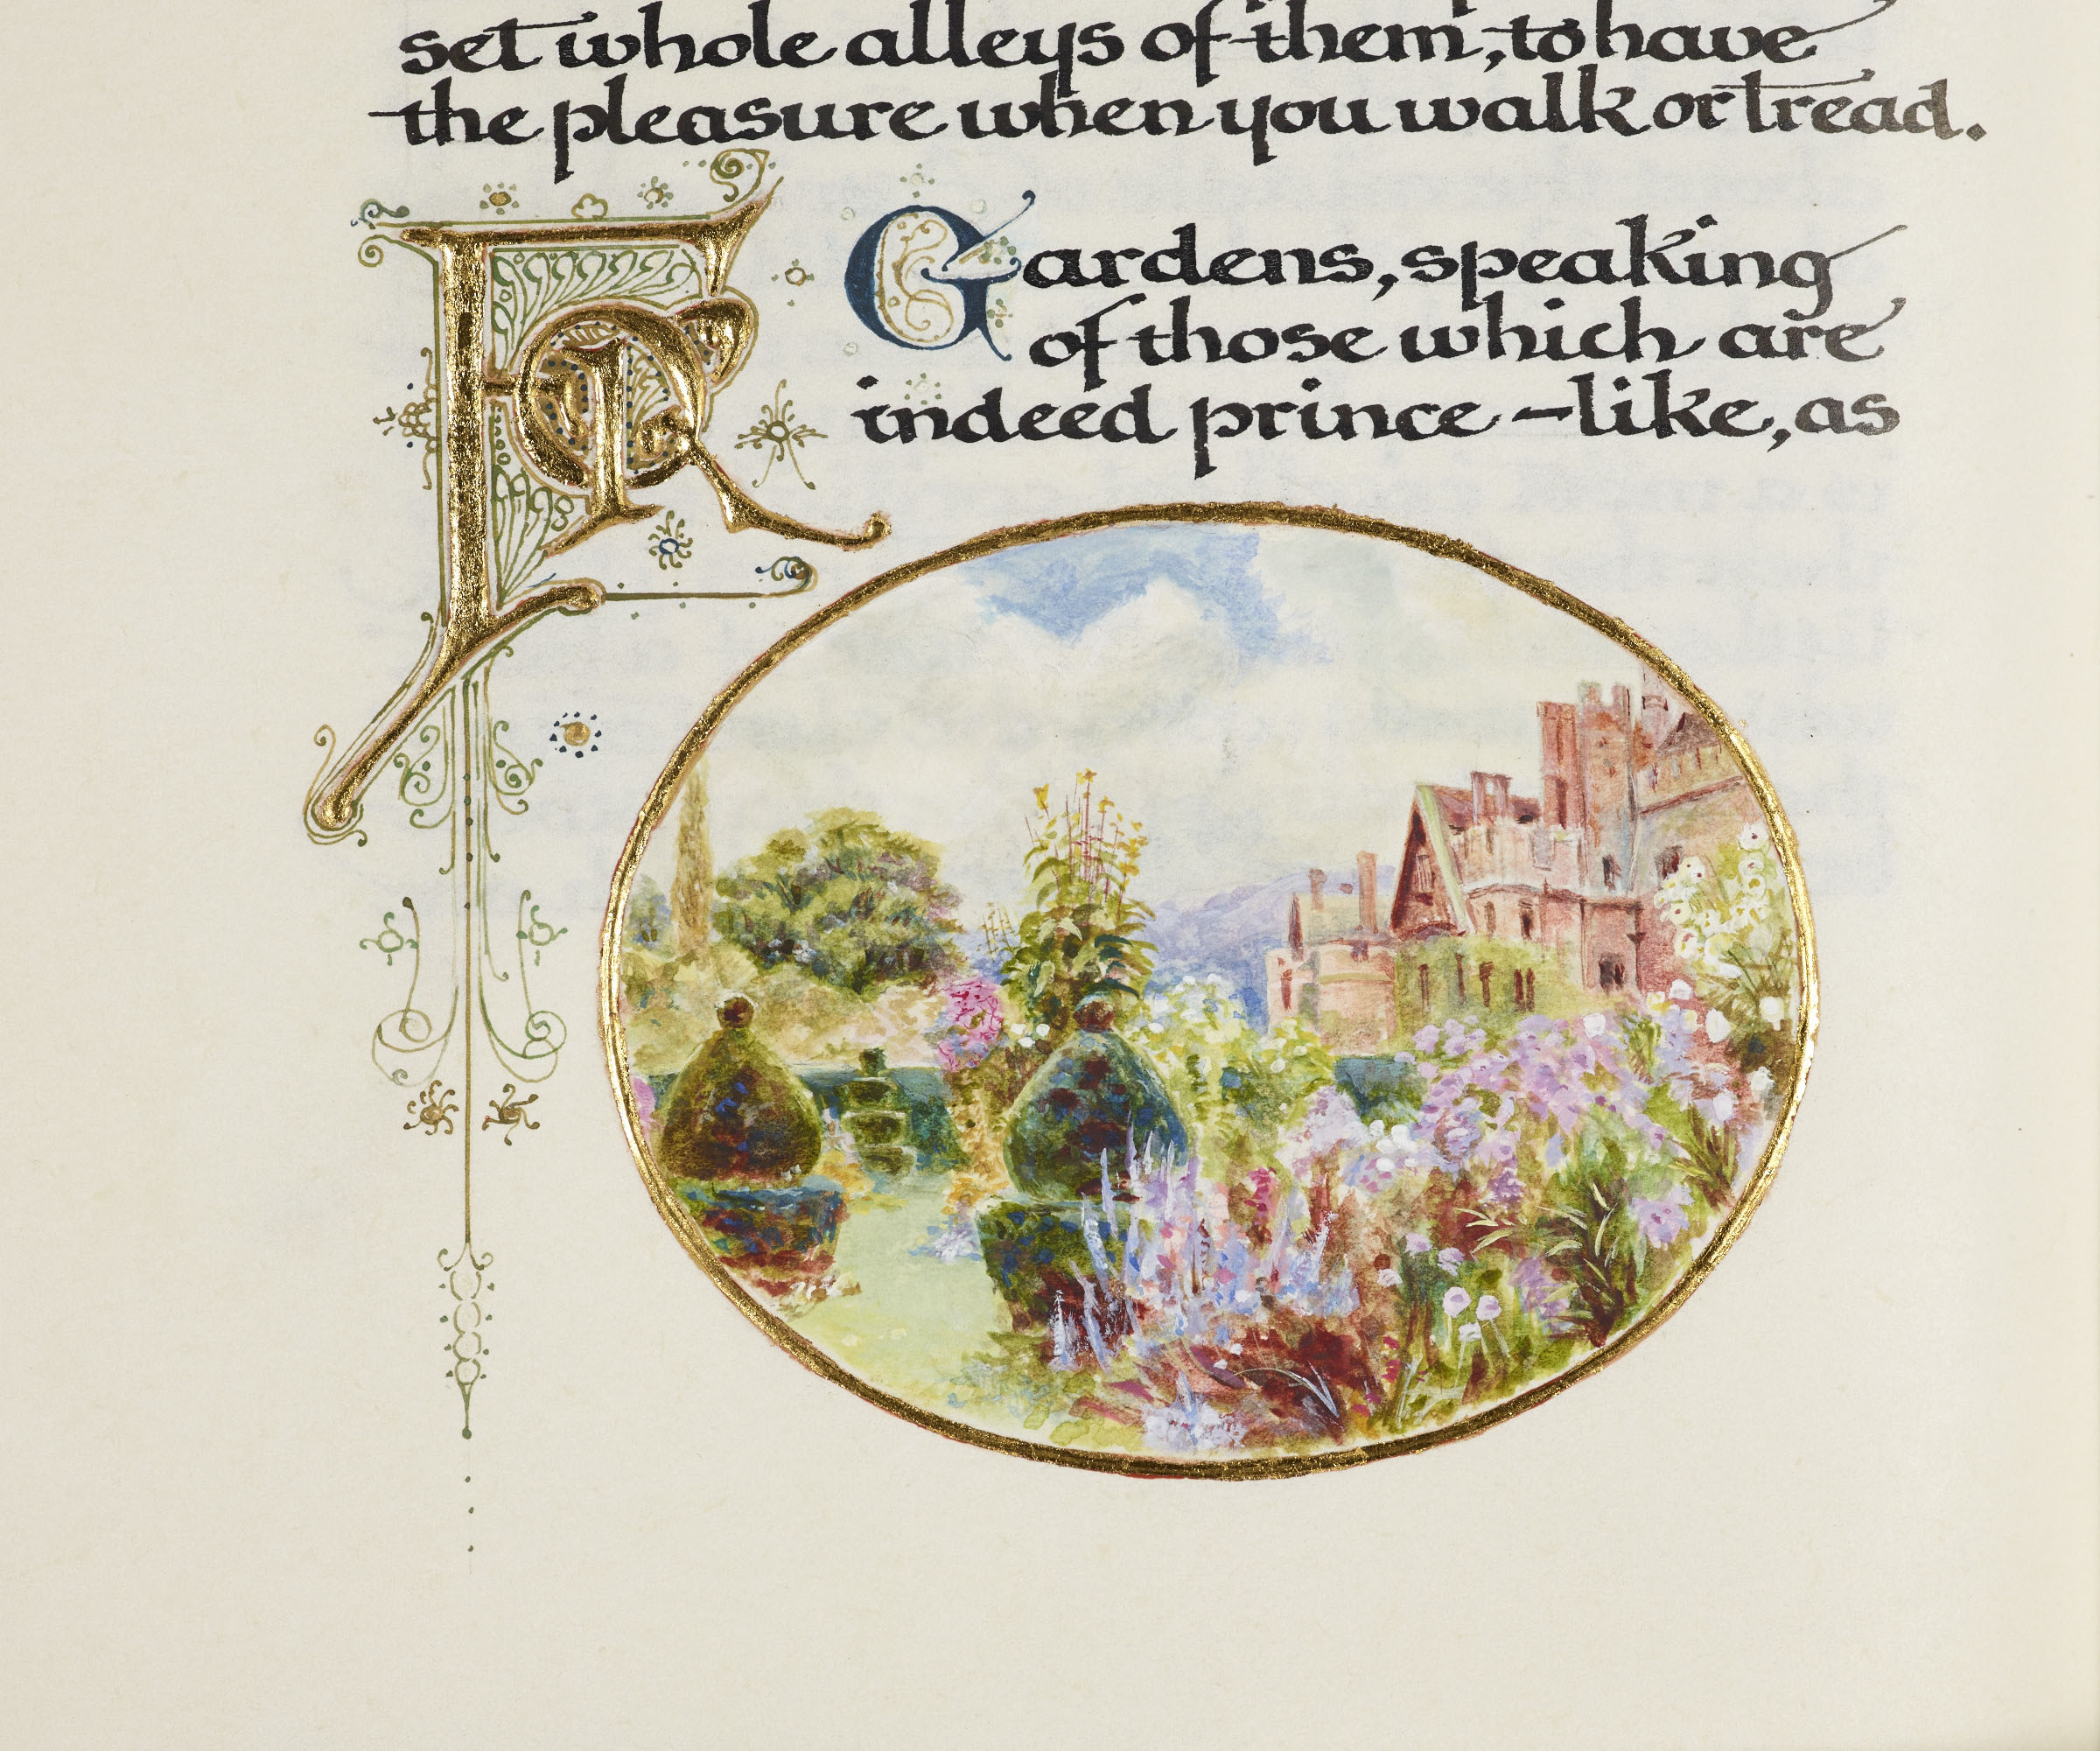 set whole alleys of them, to have
the pleasure when you walk or tread.
FOR Gardens, speaking
of those which are
indeed prince-like, as